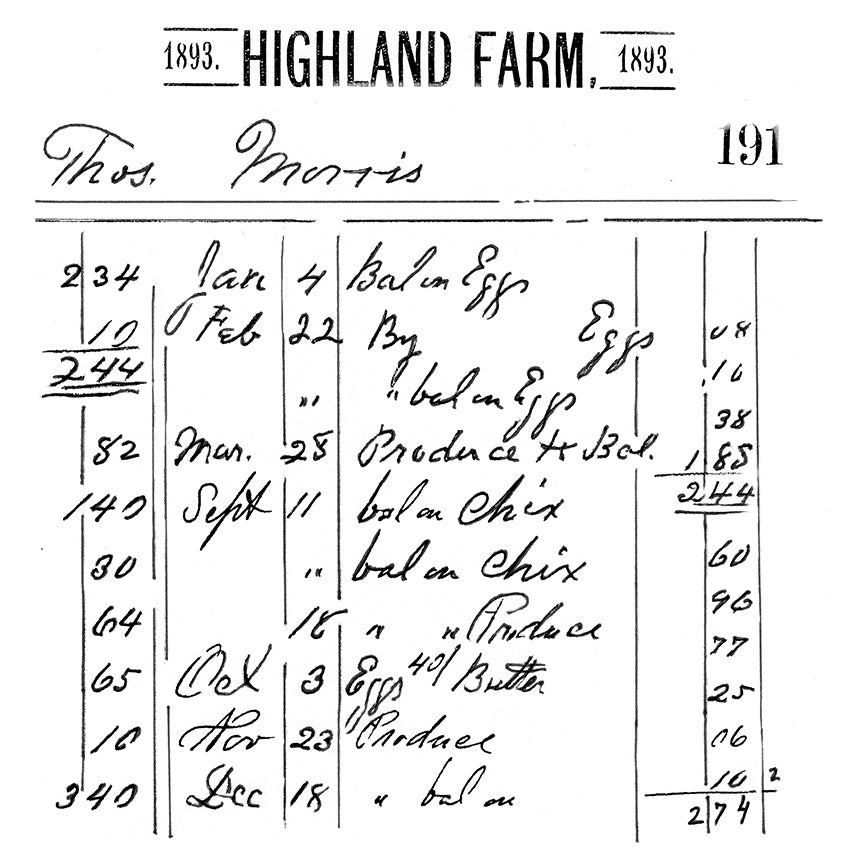 1893. HIGHLAND FARM, 1893.
Thos. Morris 191
2 34 Jan 4 Bal on Eggs
10 Feb 22 By Eggs 08
2 44 " " bal on Eggs 10
38
82 Mar. 28 Produce to Bal. 1 88
2 44
1 40 Sept 11 bal on Chix
30 " " bal on Chix 60
64 18 " " Produce 96
77
65 Oct 3 Eggs 40/ Butter 25
10 Nov 23 " Produce 06
3 40 Dec 18 " bal on 10 2
2 74